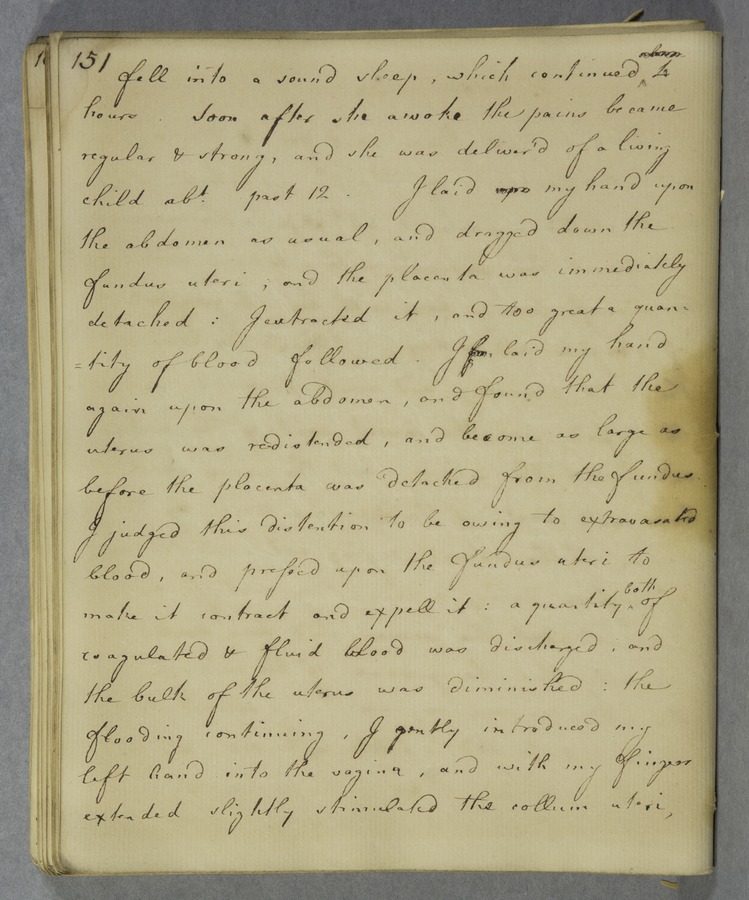 151
fell into a sound sleep, which continued
hours. Soon after she awoke the pains became
regular & strong, and she was deliver'd of a living
child abt. past 12. I laid my hand upon
the abdomen as usual, and dragged down the
fundus uteri; and the placenta was immediately
detached: I extracted it, and too great a quan=
=tity of blood followed. I laid my hand
again upon the abdomen, and found that the
uterus was redistended, and become as large as
before the placenta was detached from the fundus.
I judged this distention to be owing to extravasated
blood, and pressed upon the fundus uteri to
make it contract and expell it: a quantity both of
coagulated & fluid blood was discharged; and
the bulk of the uterus was diminished: the
flooding continuing, I gently introduced my
left hand into the vagina, and with my fingers
extended slightly stimulated the collum uteri,